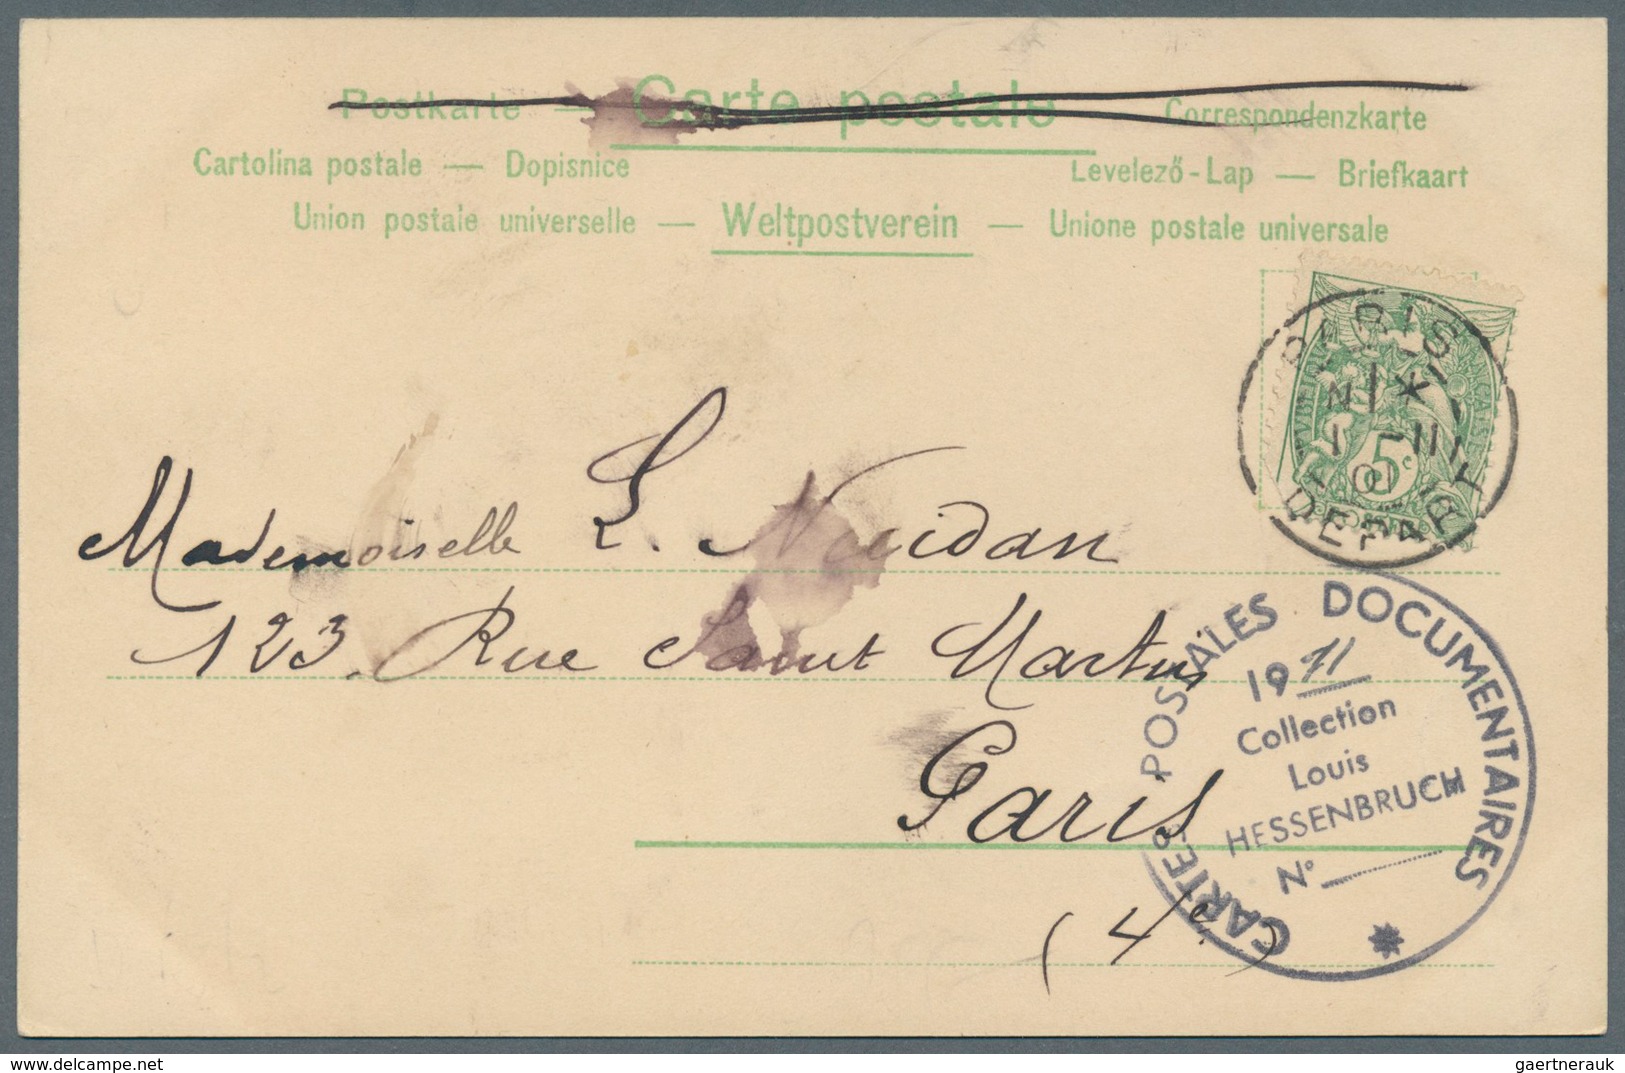 Postkarte — Carte postale — Correspondenzkarte
Cartolina postale — Dopisnice Levelező-Lap — Briefkaart
Union postale universelle — Weltpostverein — Unione postale universale
PARIS
1 *
1 - 11
01
DEPART
5c
Mademoiselle L.
123 Rue Saint Martin
Paris
(4e)
CARTES POSTALES DOCUMENTAIRES
1911
Collection
Louis
HESSENBRUCH
N°
*
www.delcampe.net
gaertnerauk